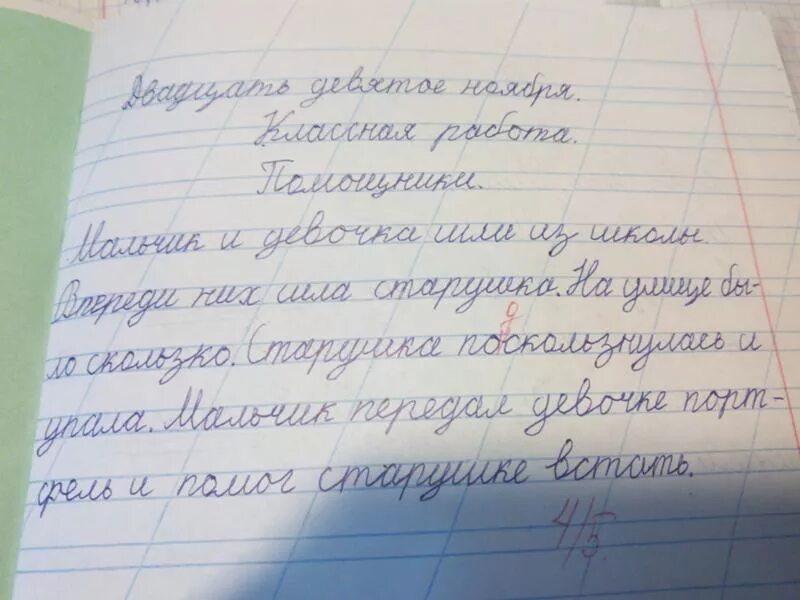 Двадцать девятое ноября.
Классная работа.
Помощники.
Мальчик и девочка шли из школы.
Впереди них шла старушка. На улице бы-
ло скользко. Старушка поскользнулась и
упала. Мальчик передал девочке порт-
фель и помог старушке встать.
4/5